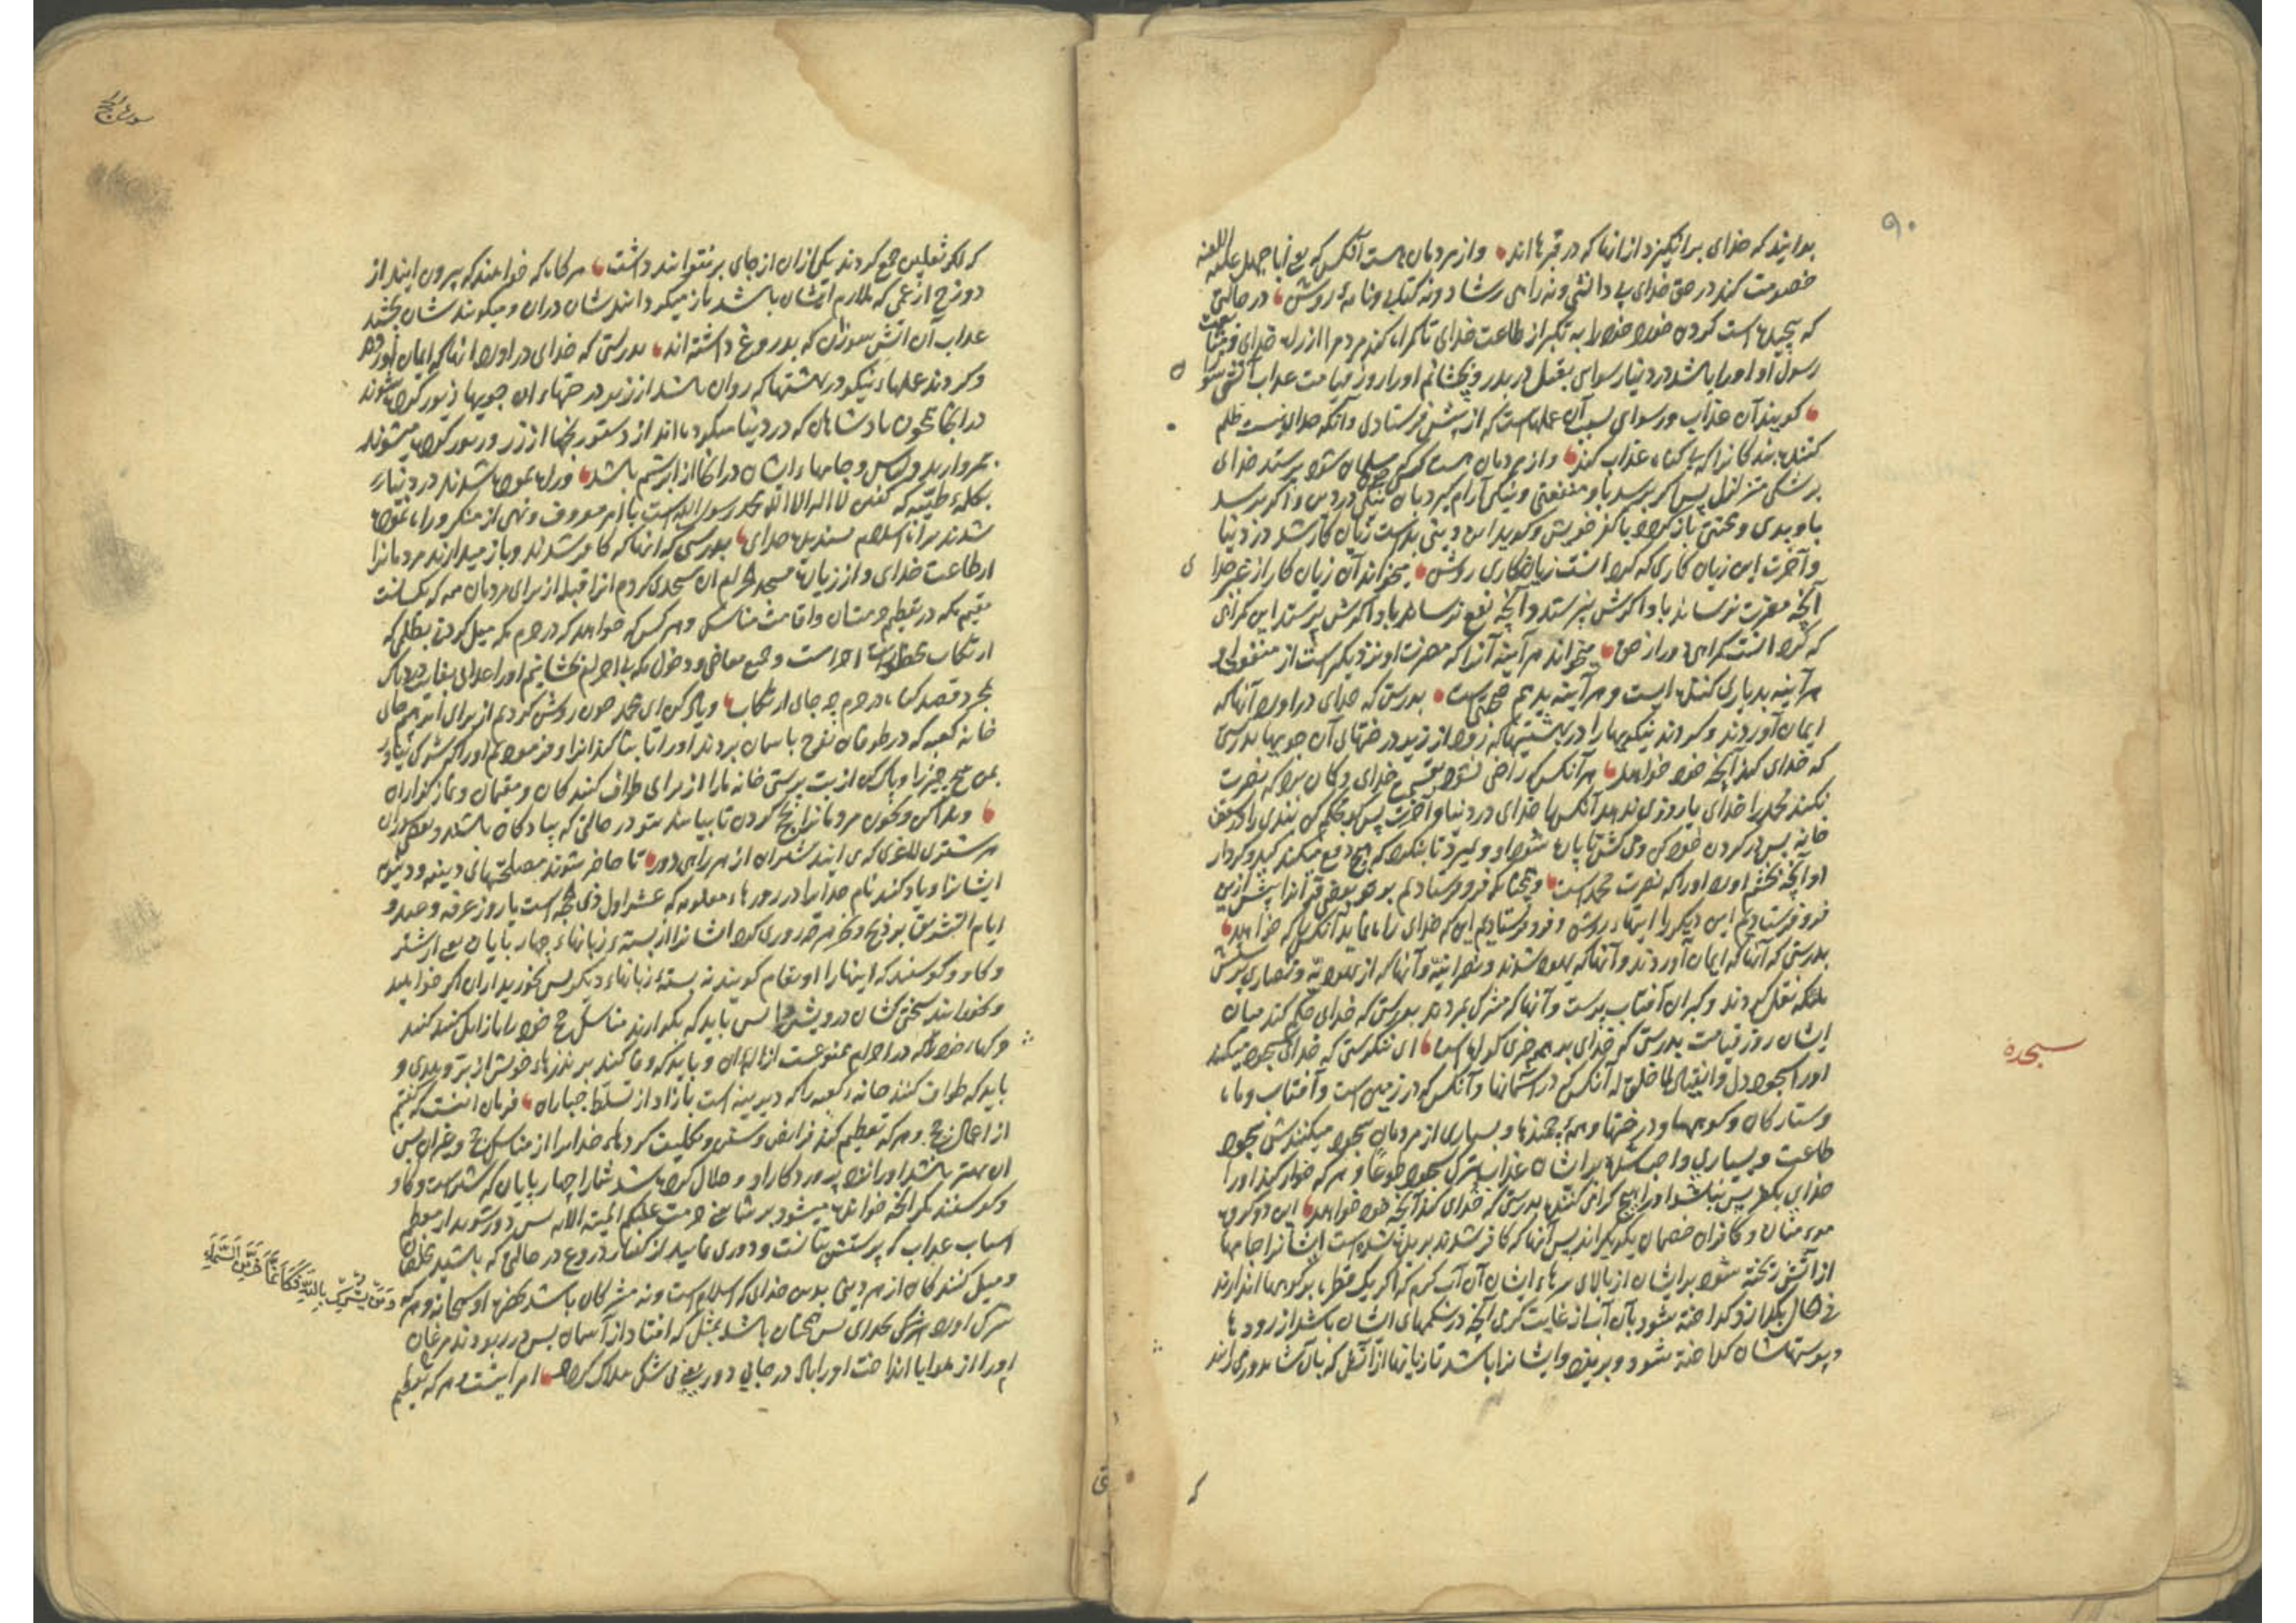 ۹۰
بدانید که خدای برانگیزد از آنها که در قبرها اند وازمردمان هست آنکس که یعنی اباجهل علیه اللعنه
خصومت کند در حق خدای بی دانشی ونه راهی رشاد ونه کتابی ونامهٔ روشن در حالتی
که پیچیده است کردن خود را به تکبر از طاعت خدای تا گمراه کند مردم را از راه خدای
رسول او اورا باشد در دنیا رسوایی بقتل در بدر وبچشانیم اورا روز قیامت عذاب آتش سوزان
گویند آن عذاب ورسوای بسبب آن عملهاست که از پیش فرستادی وآنکه خدای نیست ظلم
کننده بندگانرا که بی گناه عذاب کند وازمردمان هست کسی که مسلمان شود پرستد خدای
برشکی متزلزل پس اگر برسد باو منفعتی ونیکی آرام گیرد بآن نیکی در دین واگر برسد
باو بدی ومحنتی بازگردد با کفر خویش وگوید این دینی بد است زیان کار شد در دنیا
وآخرت این زیان کاری که کردا است زیانکاری روشن میخواند آن زیان کار از غیر خدا
آنچه مضرت نرساند باو اگرش نپرستد وآنچه نفع نرساند باو اگرش پرستد این گمراهی
که کردا است گمراهی دور از حق میخواند هرآینه آنرا که مضرت او نزدیکترست از منفعت او
هرآینه بد یاری کننده ایست وهرآینه بد هم صحبتیست بدرستی که خدای درآورد آنهاکه
ایمان آوردند وکردند نیکویهارا در بهشتیها که رود از زیر درختهای آن جویها بدرستی
که خدای کند آنچه خود خواهد هرآنکس که راضی نشود بقسمت خدای وگمان برد که نصرت
نکند محمد را خدای یا روزی ندهد آنکس را خدای در دنیا وآخرت پس گو محکم کن بندی را در سقف
خانه پس در گردن خود کن
او آنچه بخشم آورد اورا که نصرت محمدست وهمچنانکه فرو فرستادیم بوحی بعضی قرآنرا پیش ازین
فرو فرستادیم این دیگر را آیتهاء روشن وفرو فرستادیم این که خدای راه نماید آنکس را که خواهد
بدرستی که آنهاکه ایمان آوردند وآنهاکه یهود شدند ونصرانیه وآنهاکه از یهودیه ونصاری پرستش
ملائکه نقل کردند وگبران آفتاب پرست وآنهاکه مشرک بمردند بدرستی که خدای حکم کند میان
ایشان روز قیامت بدرستی که خدای بر همه چیزی گواه است ای ننگرستی که خدای را سجود میکند
اورا سجود ذل وانقیاد لما خلق له آنکس که در آسمانها وآنکس که در زمین است وآفتاب وماه
وستارگان وکوهها ودرختها وهمه چهندها وبسیاری از مردمان سجود میکنندش سجود
طاعت وبسیاری واجب شده بر ایشان عذاب بترک سجود طوعا وهرکه خوار کند اورا
خدای بکفر پس نباشد اورا هیچ گرامی کننده بدرستی که خدای کند آنچه خود خواهد این دو گروه
مومنان وکافران خصمان یکدیگراند پس آنهاکه کافر شدند بریده شده است ایشانرا جامها
از آتش ریخته شود بر ایشان از بالای سرهاء ایشان آن آب گرم که اگر یک قطره بر کوهها اندازند
فی الحال بگدازد گداخته شود بآن آب از غایت گرمی آنچه در شکمهای ایشان باشد از رودها
وپوستهاشان گداخته شود وبریزد وایشانرا باشد تازیانها از آتش که بآن
سجده
سورة الحج
که اگر ثقلین جمع گردند یکی ازان از جای بر نتوانند داشت هرگاه که خواهند که بیرون آیند از
دوزخ از غمی که ملازم ایشان باشد باز میگردانندشان دران ومیگویندشان بچشید
عذاب آن آتش سوزان که بدروغ داشته اند بدرستی که خدای درآورد آنهاکه ایمان آوردند
وکردند عملهاء نیکو در بهشتها که روان باشد از زیر درختهاء آن جویها زیور کرده شوند
در آنجا همچون پادشاهان که در دنیا میکرده اند از دستورنجها از زر وزیور کرده میشوند
بمروارید ولباس وجامهاء ایشان در آنجا از ابریشم باشد وراه نموده شدند در دنیا
بکلمهٔ طیبه که گفتن لا اله الا الله محمد رسول الله است با امر معروف ونهی از منکر وراه نموده
شدند براه اسلام پسندیده خدای بدرستی که آنهاکه کافر شدند وباز میدارند مردمانرا
از طاعت خدای واز زیارت مسجد الحرام آن مسجدی کردم آنرا قبله از برای مردمان همه که یکسانست
مقیم مکه در تعظیم حرمتشان واقامت مناسک وهر کس که خواهد که در حرم مکه میل کردن بظلمی که
ارتکاب محظورات احرامست وجمیع معاصی ودخول مکه بی احرام بچشانیم اورا عذابی
بمجرد قصد گناه در حرم چه جای ارتکاب ویاد کن ای محمد چون روشن کردیم از برای ابراهیم جای
خانه کعبه که در طوفان نوح باسمان بردند اورا تا بنا کند آنرا وفرمودیم اورا که شرک نیاور
بمن هیچ چیز را وپاک کن از بت پرستی خانه مارا از برای طواف کنندگان ومقیمان ونمازگزاران
وندا کن وبخوان مردمانرا بحج کردن تا بیایند بتو در حالتی که پیادگان باشند وبعضی سواران
بر شتری لاغری که می آیند شتران از هر راهی دور تا حاضر شوند مصلحتهای دینیه ودنیویه
ایشانرا ویاد کنند نام خدایرا در روزهاء معلومه که عشر اول ذی حجه است یا روز عرفه وعید و
ایام التشریق بر ذبح ونحر هرچه روزی کرد ایشانرا از بسته زبانهاء چهارپایان یعنی از شتر
وگاو وگوسفند که اینهارا انعام گویند نه بستهٔ زبانهاء دیگر پس بخورید از آن اگر خواهید
وبخورانید سختی کشان درویش را پس باید که بگزارند مناسک حج خود را
وگناه خود را که در احرام ممنوعست ازالهٔ آن وباید که وفا کنند بر نذرهاء خویش از بر وهدی و
باید که طواف کنند خانهٔ کعبه را که دیرینه است یا آزاد از تسلط جباران فرمان اینست که گفتیم
از اعمال حج وهرکه تعظیم کند فرایض وسنن وتکلیف کردهاء خدایرا از مناسک حج وغیران پس
آن بهتر باشد اورا نزد پروردگار او وحلال کرده شد شمارا چهارپایان که شترست وگاو
وگوسفند مگر آنچه خوانده میشود بر شما یعنی حرمت علیکم المیته الایه پس دور شوید از
اسباب عذاب که پرستش بتانست ودوری نمایید از گفتار دروغ در حالتی که باشید مخلصان
ومیل کنندگان از هر دینی بدین خدای که اسلام است ونه مشرکان باشید بحضرت او سبحانه وهرکه
شرک آورد بخدای پس همچنان باشد بمثل که افتاد از آسمان پس در ربودند مرغان
اورا از هوا یا انداخت اورا باد در جایی دور یعنی بی شک هلاک گردد امر اینست وهرکه تعظیم
وَمَن یُشْرِکْ بِاللّٰهِ فَکَأَنَّمَا خَرَّ مِنَ السَّمَاءِ